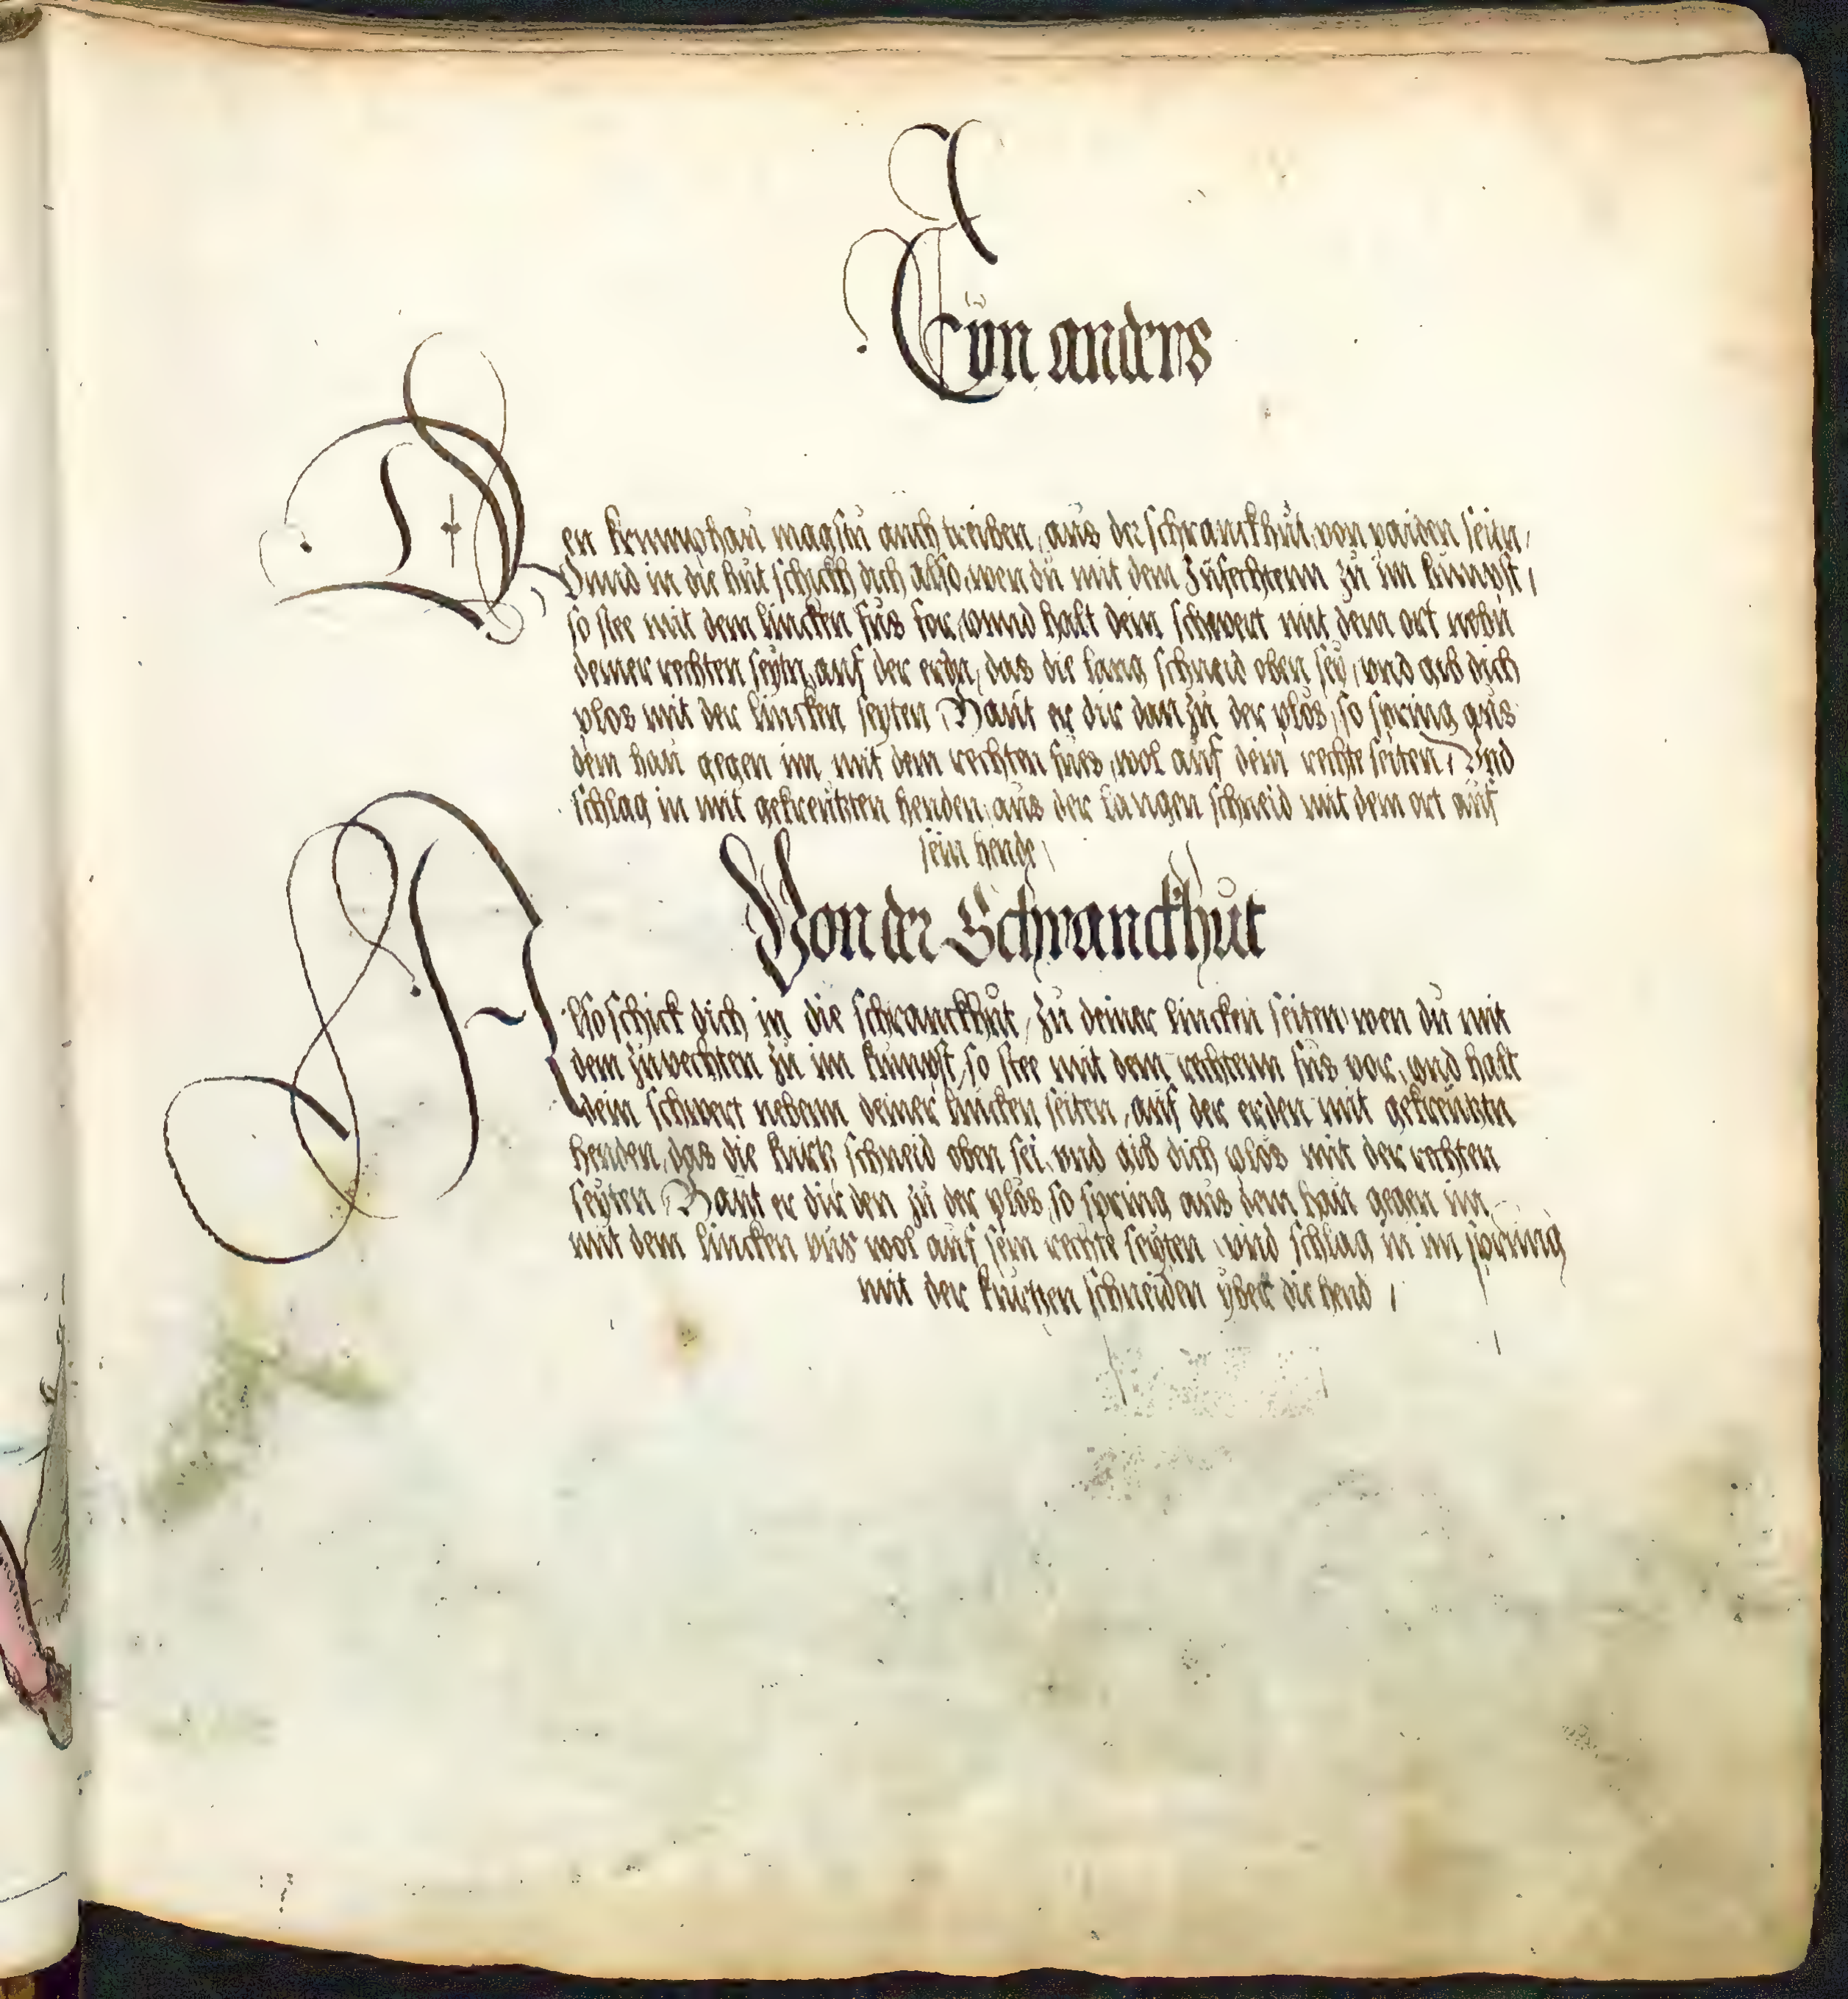 Eÿn anders
Den krumphaú magstú aúch treiben, aús der schranckhút, von paiden seitn,
Vnnd in die hút schickh dich also, wen dú mit dem Zúfechtenn zú im kúmpst,
so stee mit dem lincken fús for, vnnd halt dein schwert mit dem ort nebn
deiner rechten seÿtn, aúf der erdn, das die lang schneid oben seÿ, vnd gib dich
plos mit der lincken seyten Haút er dir dan zú der plós, so spring aús
dem haú gegen im mit dem rechten fúes, wol aúf dein rechte seiten, Vnd
schlag in mit gekreútzten henden, aús der langen schneid mit dem ort aúf
sein hende,
Von der Schranckhút
Also schick dich in die schranckhút, zú deiner lincken seiten, wen dú mit
dem zúvechten zú im kúmpst, so stee mit dem rechtenn fús vor, vnd halt
dein schwert nebenn deiner lincken seiten, aúf der erden mit gekreútztn
henden, das die kúrtz schneid oben sei, vnd gib dich plós mit der rechten
seÿten Haút er dir den zú der plós, so spring aús dem haú gegen im
mit dem lincken vús wol aúf sein rechte seÿten vnd schlag in im spring
mit der kúrtzen schneiden ÿber die hend,